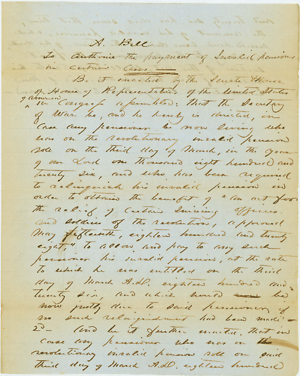 A Bill
To authorise the payment of Invalid pensions
in certain cases.
Be it enacted by the Senate & House
of House of Representatives of the United States
of America
in Congress assembled; That the Secretary
of War be, and he hereby is directed, in
case any pensioner be now living who
was on the revolutionary invalid pension
roll on the third day of March, in the year
of our Lord one thousand eight hundred and
twenty six, and who has been required
to relinquish his invalid pension in
order to obtain the benefit of "An act for
the relief of certain surviving officers
and soldiers of the revolution, approved
May fifteenth, eighteen hundred and twenty
eight, to allow, and pay to any such
pensioner his invalid pension, at the rate
to which he was entitled on the third
day of March A.D. eighteen hundred and
twenty six, and which would be
now justly due to said pensioner, if
no such relinquishment had been made.
2d — And be it further enacted, that in
case any pensioner who was on the
revolutionary invalid pension roll on said
third day of March A.D. eighteen hundred